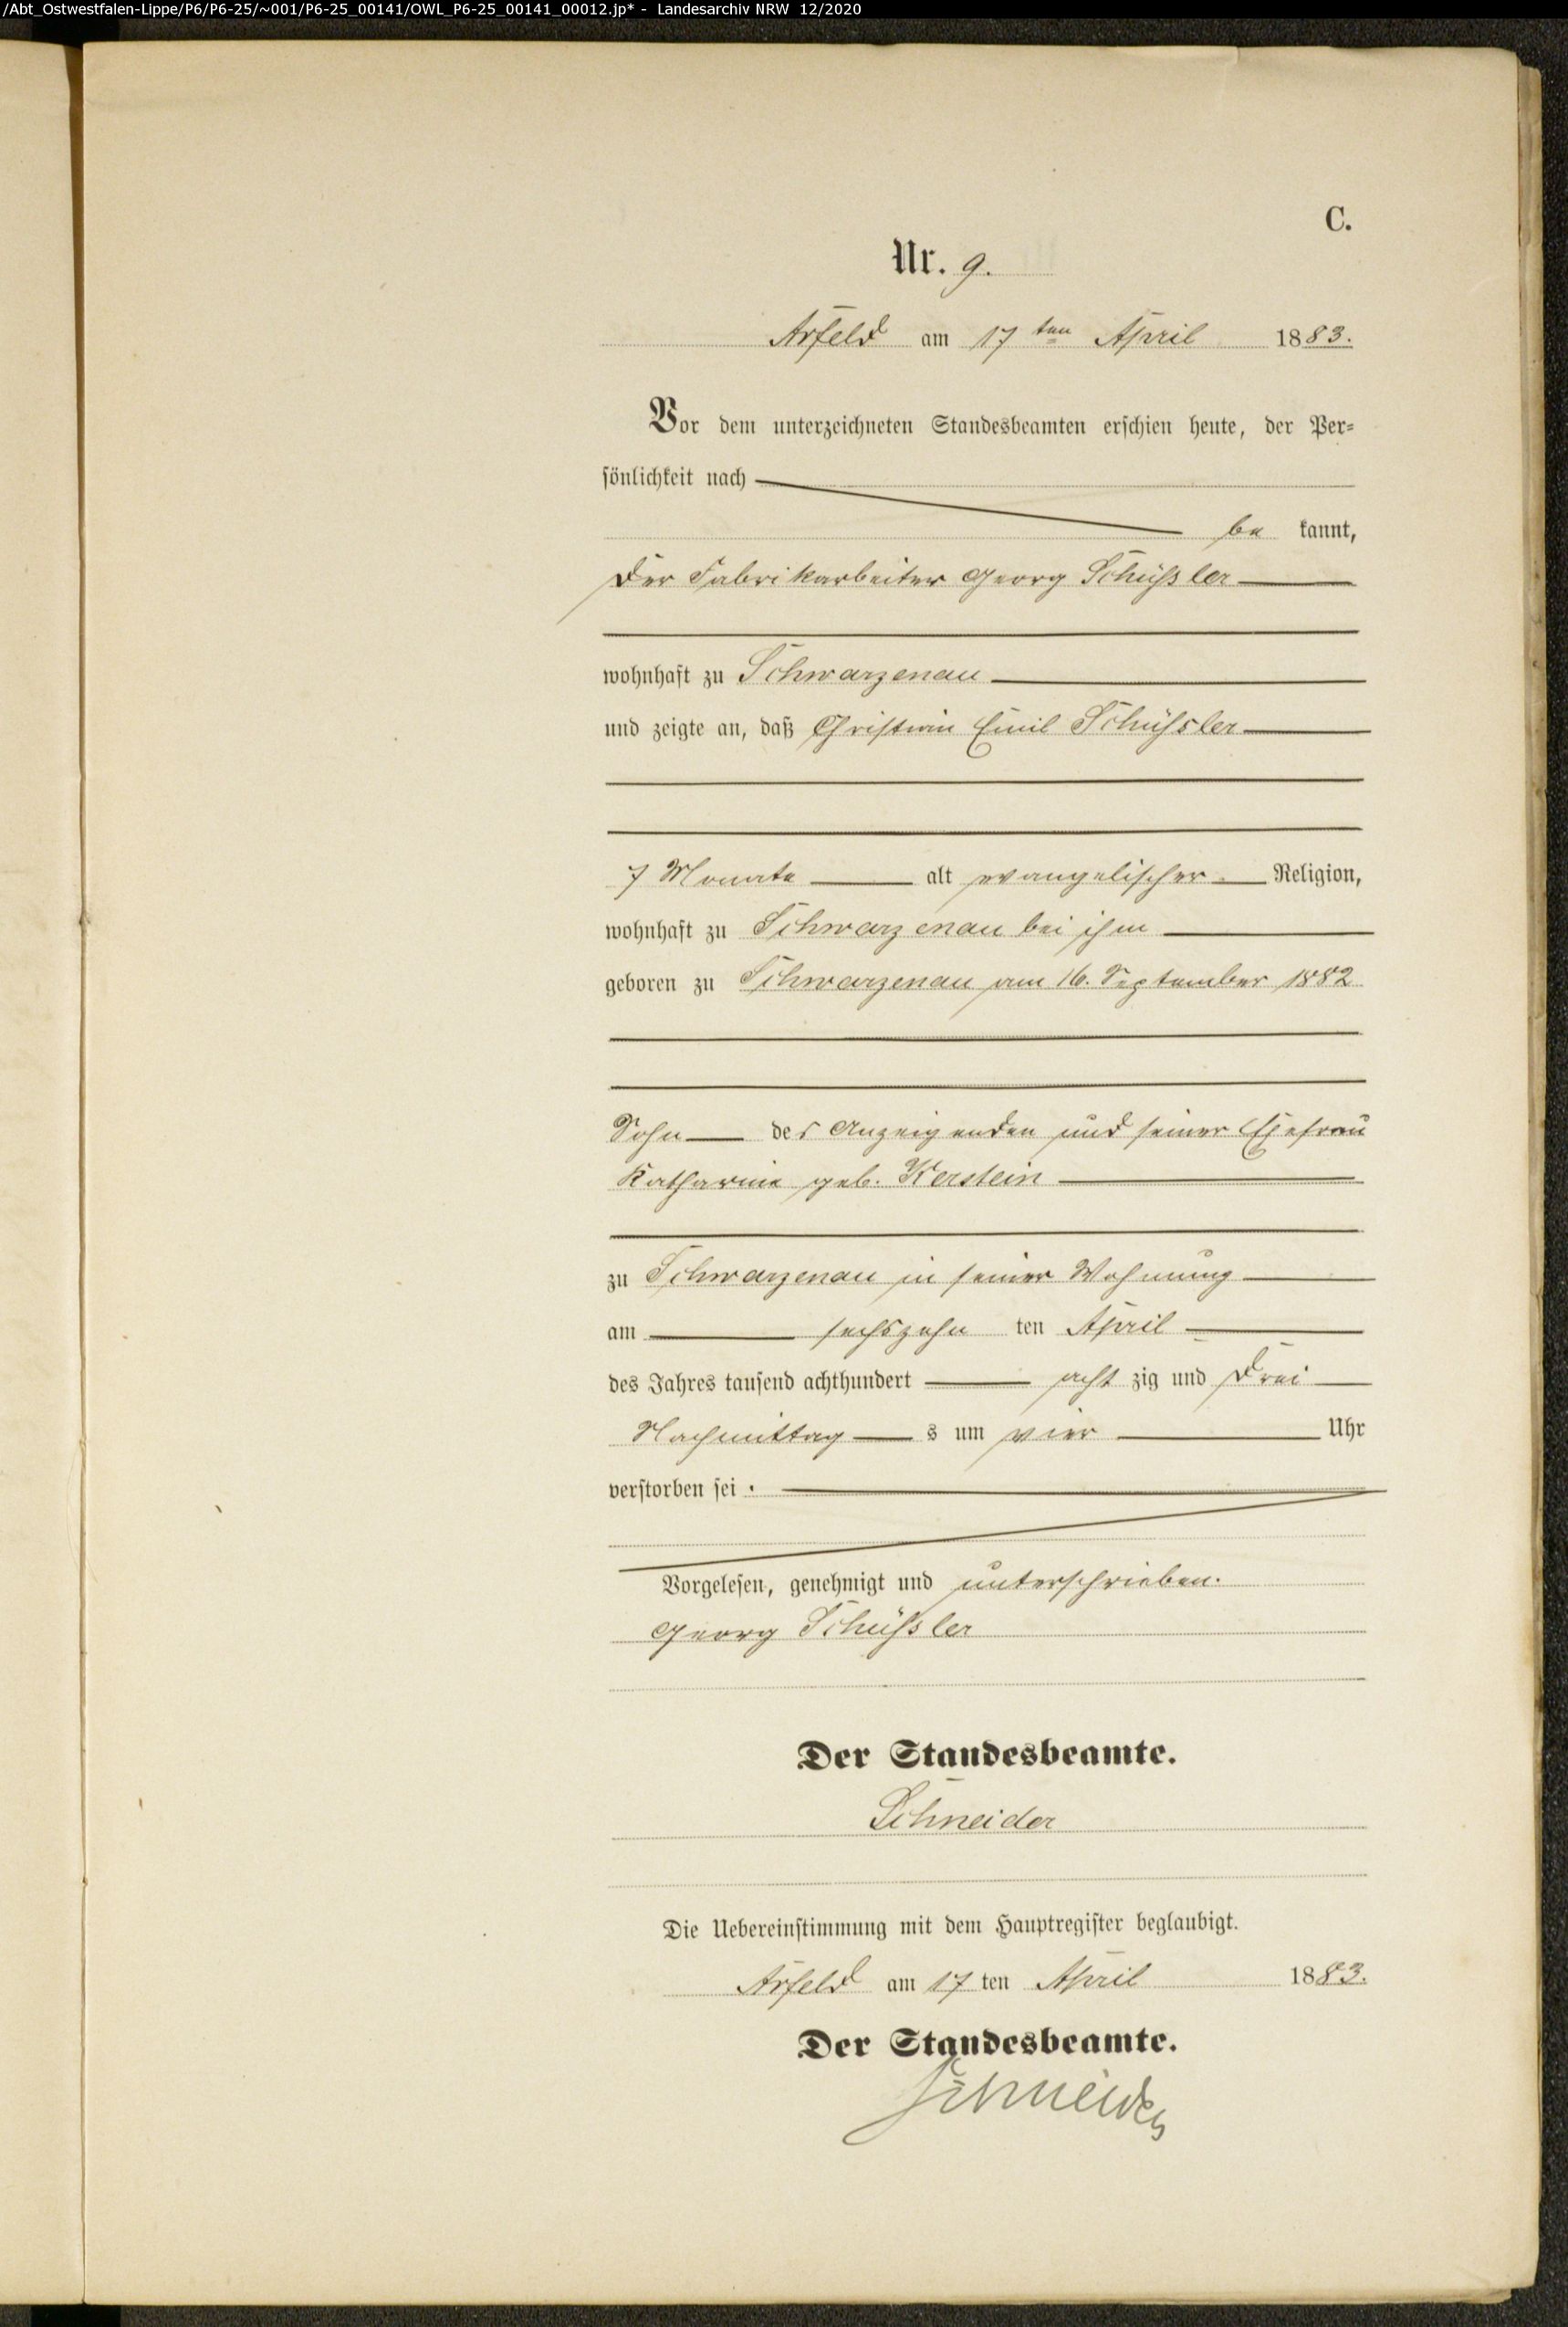 /Abt_Ostwestfalen-Lippe/P6/P6-25/~001/P6-25_00141/OWL_P6-25_00141_00012.jp* - Landesarchiv NRW 12/2020
C.
Nr. 9.
Arfeld am 17ten April 1883.
Vor dem unterzeichneten Standesbeamten erschien heute, der Per-
sönlichkeit nach
be kannt,
der Fabrikarbeiter Georg Schüßler
wohnhaft zu Schwarzenau
und zeigte an, daß Christian Emil Schüßler
7 Monate alt evangelischer Religion,
wohnhaft zu Schwarzenau bei ihm
geboren zu Schwarzenau am 16. September 1882
Sohn des Anzeigenden und seiner Ehefrau
Katharine geb. Kerstein
zu Schwarzenau in seiner Wohnung
am sechszehn ten April
des Jahres tausend achthundert acht zig und drei
Nachmittag s um vier Uhr
verstorben sei.
Vorgelesen, genehmigt und unterschrieben.
Georg Schüßler
Der Standesbeamte.
Schneider
Die Uebereinstimmung mit dem Hauptregister beglaubigt.
Arfeld am 17 ten April 1883.
Der Standesbeamte.
Schneider